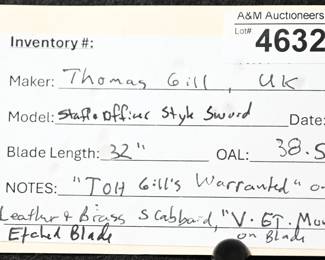 A&M Auctioneers
Lot# 4632
Inventory #:
Maker: Thomas Gill, UK
Model: Staff Officer Style Sword Date:
Blade Length: 32" OAL: 38.5
NOTES: "TOH Gill's Warranted" o
Leather & Brass Scabbard, "V. ET. Mou
Etched Blade on Blade